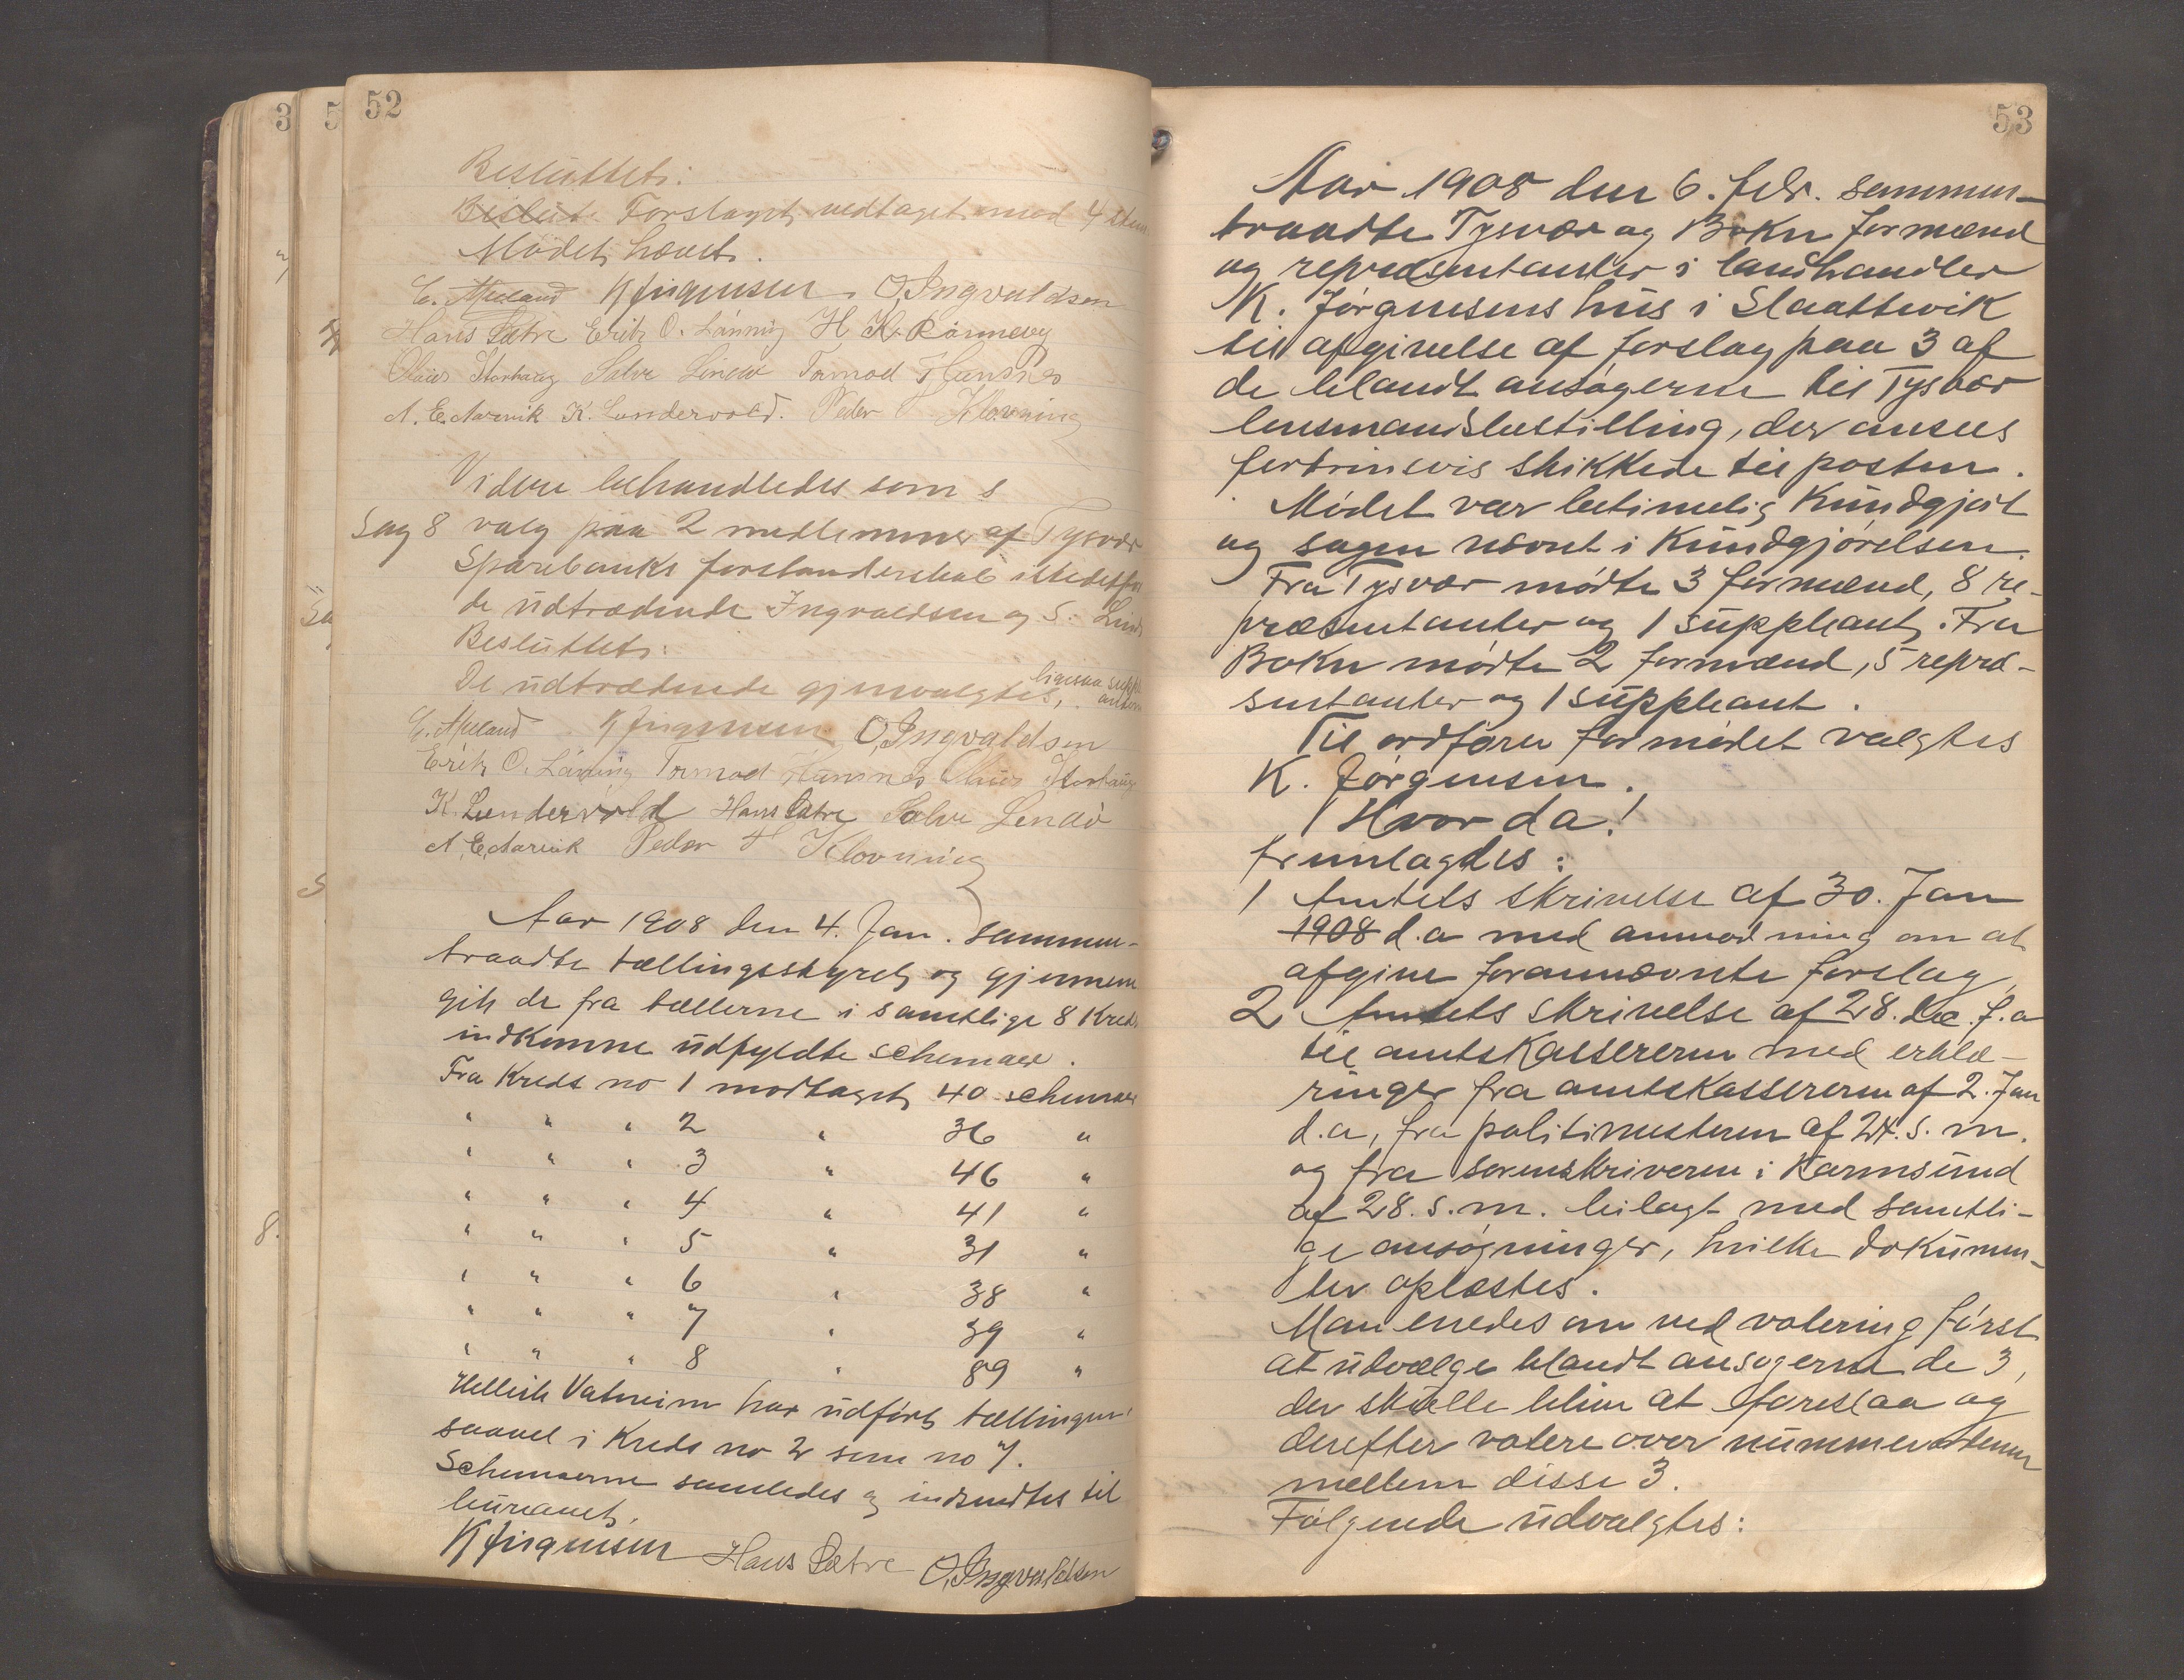 52
Besluttet:
Beslut Forslaget vedtaget mod 4 stem
Mødet hævet.
C. Apeland K Jørgensen O. Ingvaldsen
Hans Sætre Erik O. Lanning H. K. Rønnevig
Olaus Storhaug Salve Lindø Tormod Hunsnes
A. E. Aarvik K. Lundervold. Peder T Klovning
Videre behandledes som s
Sag 8 valg paa 2 medlemmer af Tysvær
Sparebanks forstanderskab istedetfor
de udtrædende Ingvaldsen og S. Lindø
Besluttet:
De udtrædende gjenvalgtes, ligesaa supple
anterne
C. Apeland K Jørgensen O. Ingvaldsen
Erik O. Lanning Tormod Hunsnes Olaus Storhaug
K. Lundervold Hans Sætre Salve Lindø
A. E. Aarvik Peder T Klovning
Aar 1908 den 4. Jan. sammen-
traadte tællingsstyret og gjennem
gik de fra tællerne i samtlige 8 Kreds
indkomne udfyldte schemaer.
Fra Kreds no 1 modtaget 40 schemaer
" " " 2 " 36 "
" " " 3 " 46 "
" " " 4 " 41 "
" " " 5 " 31 "
" " " 6 " 38 "
" " " 7 " 39 "
" " " 8 " 89 "
Vatneim har udført tællingen
saavel i Kreds no 2 som no 7.
Schemaerne samledes og indsendtes til
bureauet.
K Jørgensen Hans Sætre O. Ingvaldsen
53
Aar 1908 den 6. febr. sammen-
traadte Tysvær og Bokn formænd
og repræsentanter i landhandler
K. Jørgensens hus i Slaattevik
til afgivelse af forslag paa 3 af
de blandt ansøgerne til Tysvær
lensmandsbestilling, der ansees
fortrinsvis skikkede til posten.
Mødet var betimelig Kundgjort
og sagen nævnt i Kundgjørelsen.
Fra Tysvær mødte 3 formænd, 8 re-
præsentanter og 1 suppleant. Fra
Bokn mødte 2 formænd, 5 repræ-
sentanter og 1 suppleant.
Til ordfører for mødet valgtes
K. Jørgensen.
Hvorda!
fremlagdes:
1 Amtets skrivelse af 30. Jan
1908 d.a med anmodning om at
afgive forannævnte forslag
2 Amtets skrivelse af 28. dec. f.a
til amtskassereren med erklæ-
ringer fra amtskassereren af 2. Jan
d.a, fra politimesteren af 24. s. m.
og fra sorenskriveren i Karmsund
af 28. s. m. bilagt med samtli-
ge ansøgninger, hvilke dokumen-
ter oplæstes.
Man enedes om ved votering først
at udvælge blandt ansøgerne de 3,
der skulle blive at foreslaa og
derefter votere over nummerordenen
mellem disse 3.
Følgende udvalgtes: